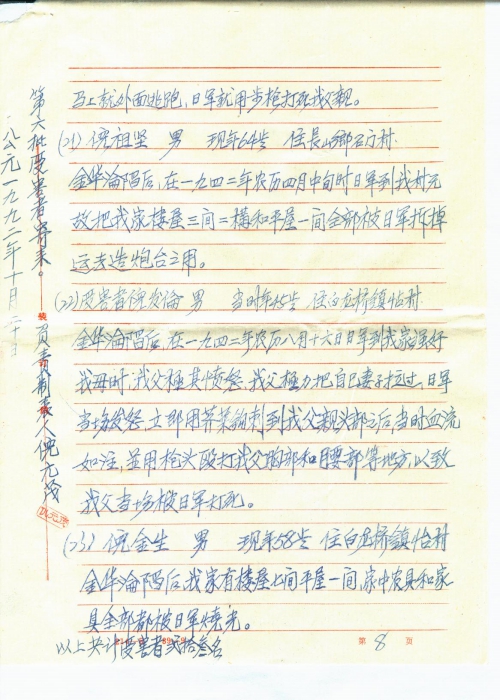 马上就外面逃跑，日军就用步枪打死我父亲。
(21) 倪祖坚 男 现年64岁 住長山鄉石门村
金华淪陷后，在一九四二年农历四月中旬时日军到我村无
故把我家楼屋三间二構和平屋一间全部被日军拆掉
运去造炮台之用。
(22) 受害者倪发倫 男 当时年45岁 住白龙桥鎮怡村
金华淪陷后，在一九四二年农历八月十六日日军到我家强奸
我母时，我父極其愤怒，我父極力把自己妻子拉过，日军
当场发怒，立即用荠菜鉤刺到我父親头部之后当时血流
如注，並用枪头殴打我父胸部和腰部等地方，以致
我父当场被日军打死。
(23) 倪金生 男 现年58岁 住白龙桥鎮怡村
金华淪陷后我家有楼屋七间平屋一间，家中农具和家
具全部都被日军燒光。
以上共计受害者贰拾叁名
第 8 页
第六批受害者寄来。
公元一九九二年十月二十日
装
负责制表人倪元茂